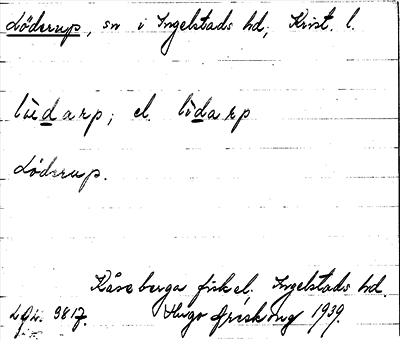 Löderup, sn i Ingelstads hd, Krist. l.
lùdarp, el. lìdarp
Löderup.
Kåseberga fiskel. Ingelstads hd.
9817. Hugo Areskoug 1939.